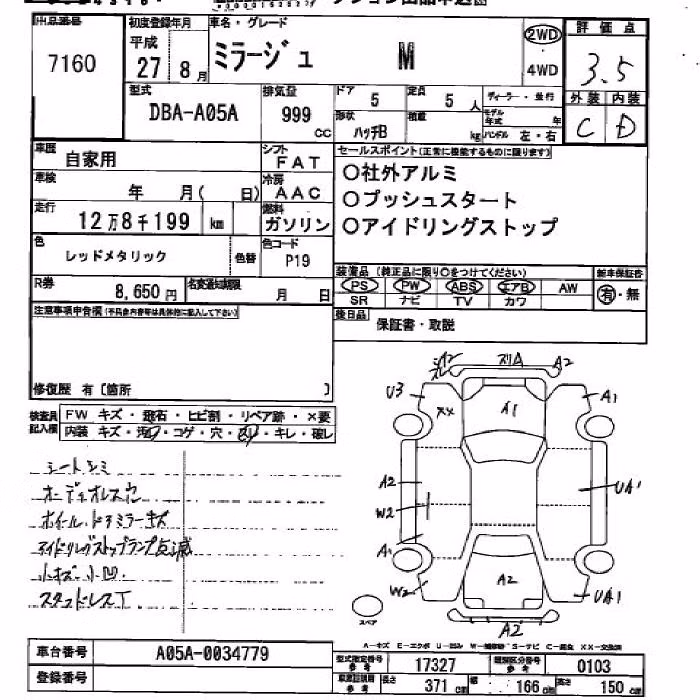 出品番号
7160
初度登録年月
平成
27 8月
車名・グレード
ミラージュ M
2WD
4WD
評価点
3.5
外装 内装
C D
型式
DBA-A05A
排気量
999 cc
ドア
5
定員
5 人
形状
ハッチB
積載
kg
ディーラー・並行
モデル年式 年
ハンドル 左・右
車歴
自家用
シフト
FAT
車検
年 月( 日)
冷房
AAC
走行
12万8千199 km
燃料
ガソリン
色
レッドメタリック
色替
色コード
P19
R券
8,650円
名変通知期限
月 日
セールスポイント(正常に機能するものに限ります)
○社外アルミ
○プッシュスタート
○アイドリングストップ
装備品(純正品に限り○をつけてください)
PS PW ABS エアB AW
SR ナビ TV カワ
新車保証書
有・無
後日品
保証書・取説
注意事項申告欄(不具合内容等は具体的に記入して下さい)
修復歴 有〔箇所 〕
検査員記入欄
FW キズ・飛石・ヒビ割・リペア跡・×要
内装 キズ・汚れ・コゲ・穴・スレ・キレ・破レ
シートシミ
オーディオレス穴
ホイール・ドアミラーキズ
アイドリングストップランプ点滅
小キズ・小凹
スタッドレスT
A2 スリA A2
U3 XX A1 A1
A2
W2
UA1
A1
W2 A2 UA1
A2
スペア
A-キズ E-エクボ U-凹み W-補修跡 S-サビ C-腐食 XX-交換済
車台番号
A05A-0034779
登録番号
型式指定番号 参考
17327
類別区分番号 参考
0103
長さ
371 cm
幅
166 cm
高さ
150 cm